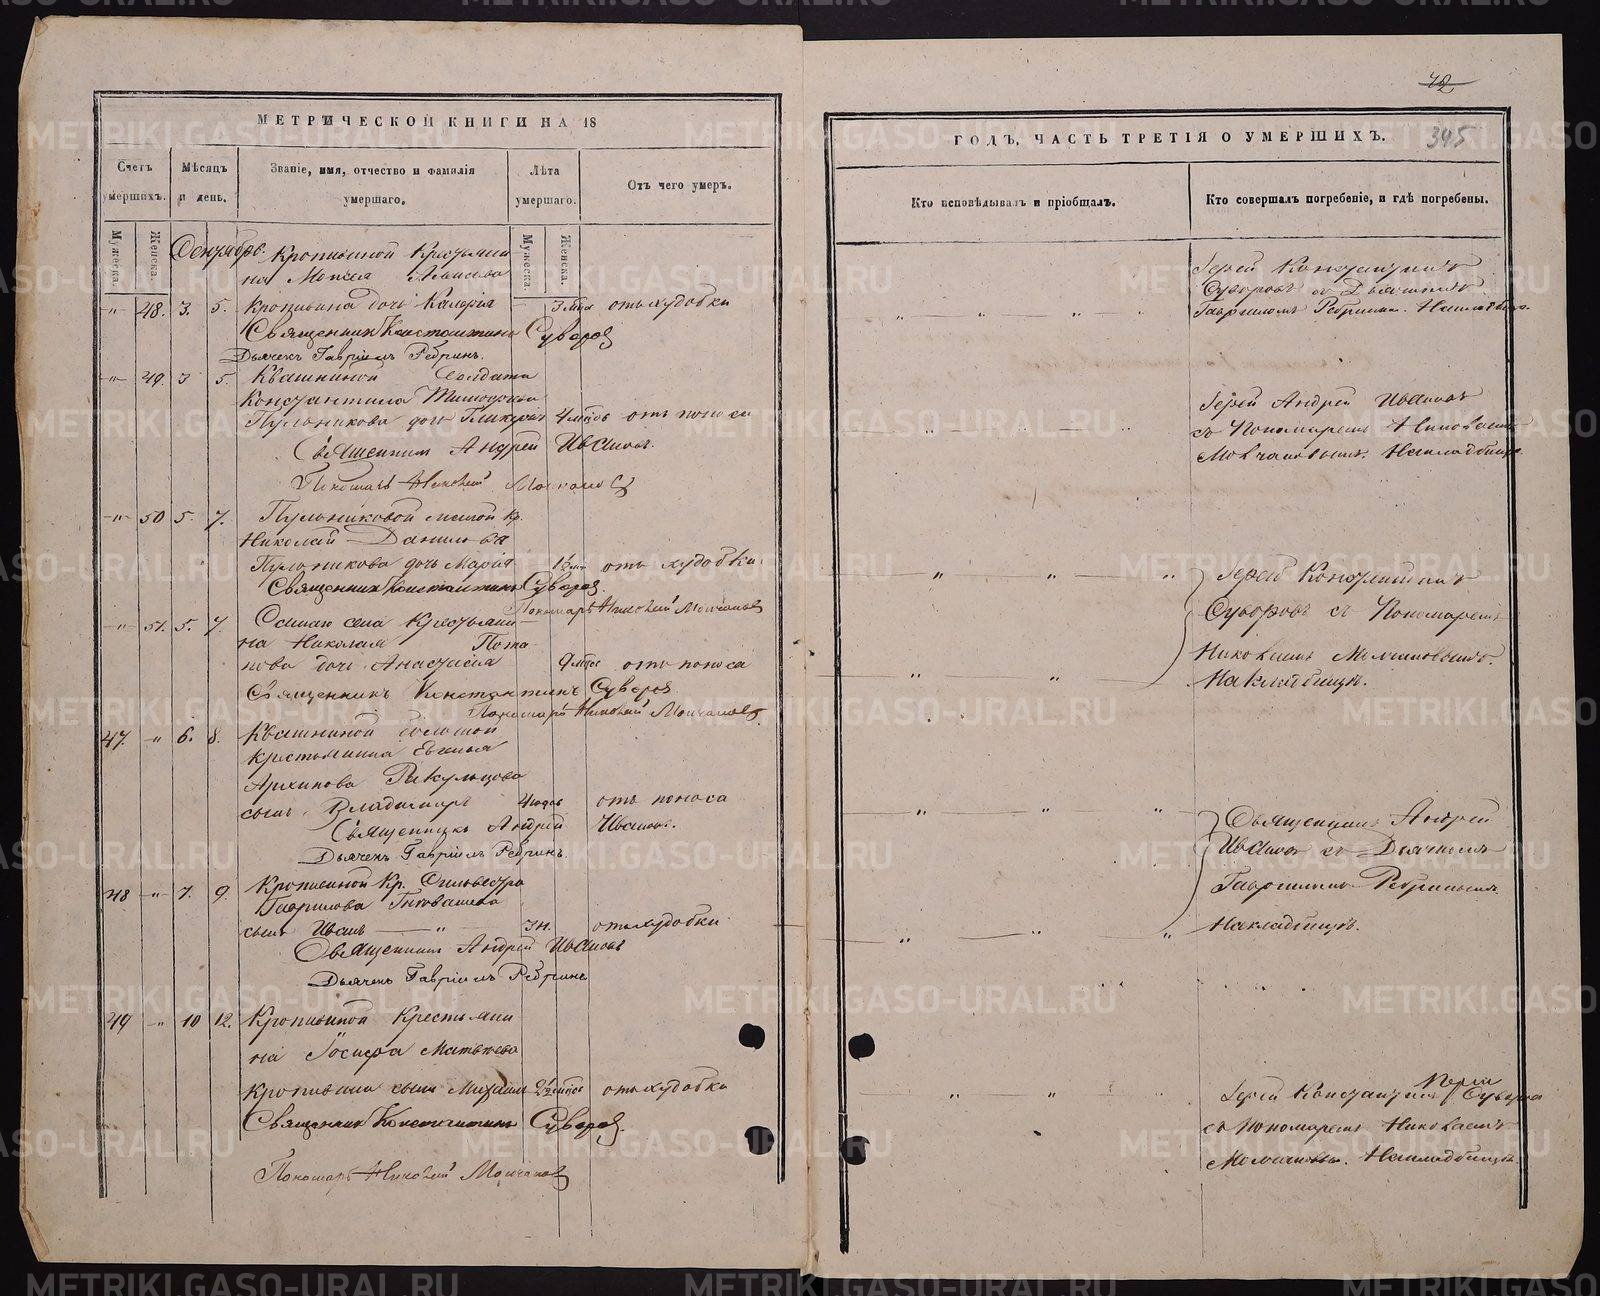 МЕТРИЧЕСКОЙ КНИГИ НА 18
Счетъ умершихъ.
Мѣсяцъ и день.
Званіе, имя, отчество и фамилія умершаго.
Лѣта умершаго.
Отъ чего умеръ.
Мужеска.
Женска.
Мужеска.
Женска.
Сентябрь.
Кропивиной Крестьяни
на Моисея
48. 3. 5. Кропивина дочь Валерія 3 мѣся отъ худобки
Священникъ Константинъ Суворовъ
Дьячекъ Гавріилъ Ребринъ.
49. 3 5. Квашниной Солдата
Константина
Пульникова дочь 4 мѣсяц отъ поноса
Священникъ Андрей Ивановъ.
Пономарь Николай Молчановъ
50 5. 7. Пульниковой малой Кр.
Николая Данилова
Пульникова дочь Марія отъ худобки.
Священникъ Константинъ Суворовъ.
Пономарь Николай Молчановъ
51. 5. 7. села Крестьяни
на Николая Пота
пова дочь Анастасія 9 мѣс отъ поноса
Священникъ Константинъ Суворов.
Пономарь Николай Молчановъ.
47. " 6. 8. Квашниной большой
крестьянина Евгенія
Архипова
сынъ Владимиръ 4 годов отъ поноса
Священникъ Андрей Ивановъ.
Дьячекъ Гавріилъ Ребринъ.
48 " 7. 9. Кропивиной Кр. Сильвестра
Гаврилова
сынъ Иванъ " 3 н. отъ худобки
Священникъ Андрей Ивановъ
Дьячекъ Гавріилъ Ребринъ
49 " 10 12. Кропивиной Крестьяни
на Іосифа Матвѣева
Кропивина сынъ Михаилъ 2½ мѣся отъ худобки
Священникъ Константинъ Суворовъ
Пономарь Николай Молчановъ
42
ГОДЪ, ЧАСТЬ ТРЕТІЯ О УМЕРШИХЪ.
395
Кто исповѣдывалъ и пріобщалъ.
Кто совершалъ погребеніе, и гдѣ погребены.
Іерей Константинъ
Суворовъ съ Дьячкомъ
Гавріиломъ Ребринымъ. На кладбищѣ.
Іерей Андрей Ивановъ
съ Пономаремъ Николаемъ
Молчановымъ. На кладбищѣ.
Іерей Константинъ
Суворовъ съ Пономаремъ
Николаемъ Молчановымъ.
На кладбищѣ.
Священникъ Андрей
Ивановъ съ Дьячкомъ
Гавріиломъ Ребринымъ
На кладбищѣ.
Іерей Константинъ Суворовъ
съ Пономаремъ Николаемъ
Молчановымъ. На кладбищѣ.
METRIKI.GASO-URAL.RU